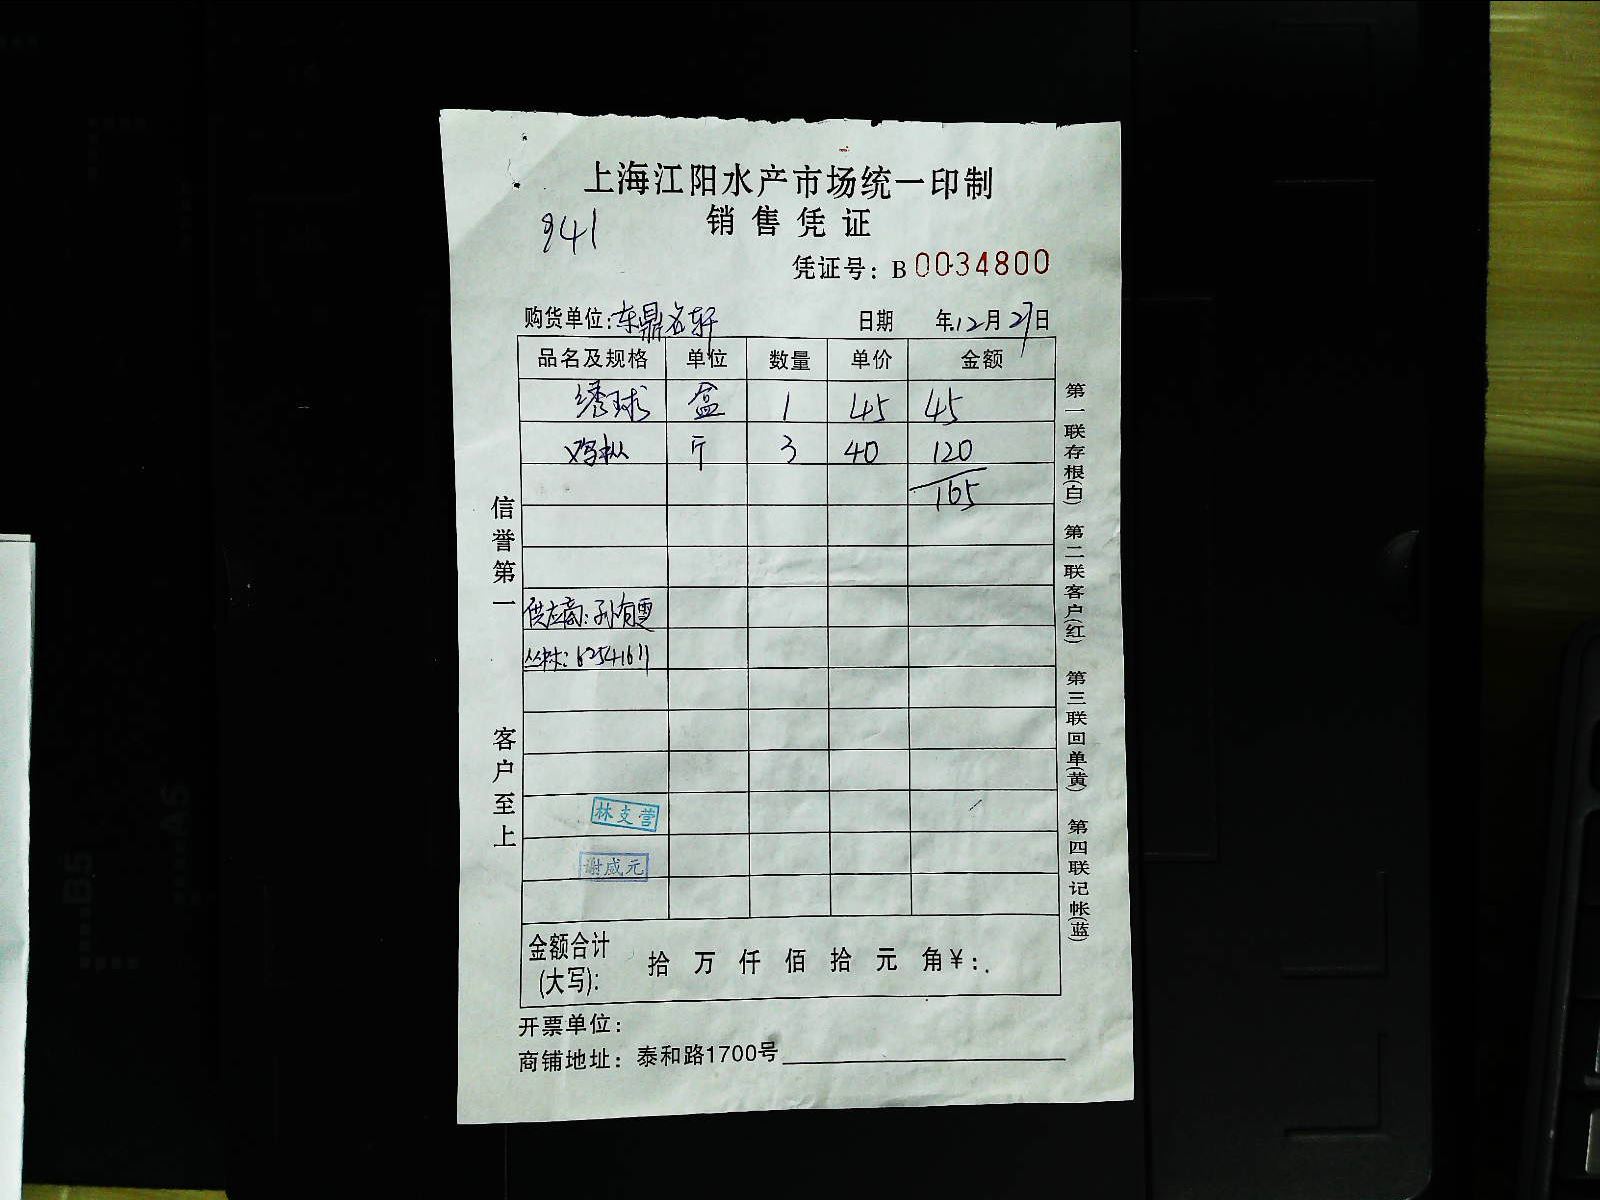 上海江阳水产市场统一印制
销售凭证
941
凭证号：B 0034800
购货单位：东鼎名轩 日期 年12月27日
品名及规格 单位 数量 单价 金额
绣球 盒 1 45 45
鸡枞 斤 3 40 120
165
供应商：孙有雪
丛林：62541611
林支营
谢咸元
金额合计
(大写)： 拾 万 仟 佰 拾 元 角￥：.
开票单位：
商铺地址：泰和路1700号
信誉第一
客户至上
第一联存根(白)
第二联客户(红)
第三联回单(黄)
第四联记帐(蓝)
B5
A5